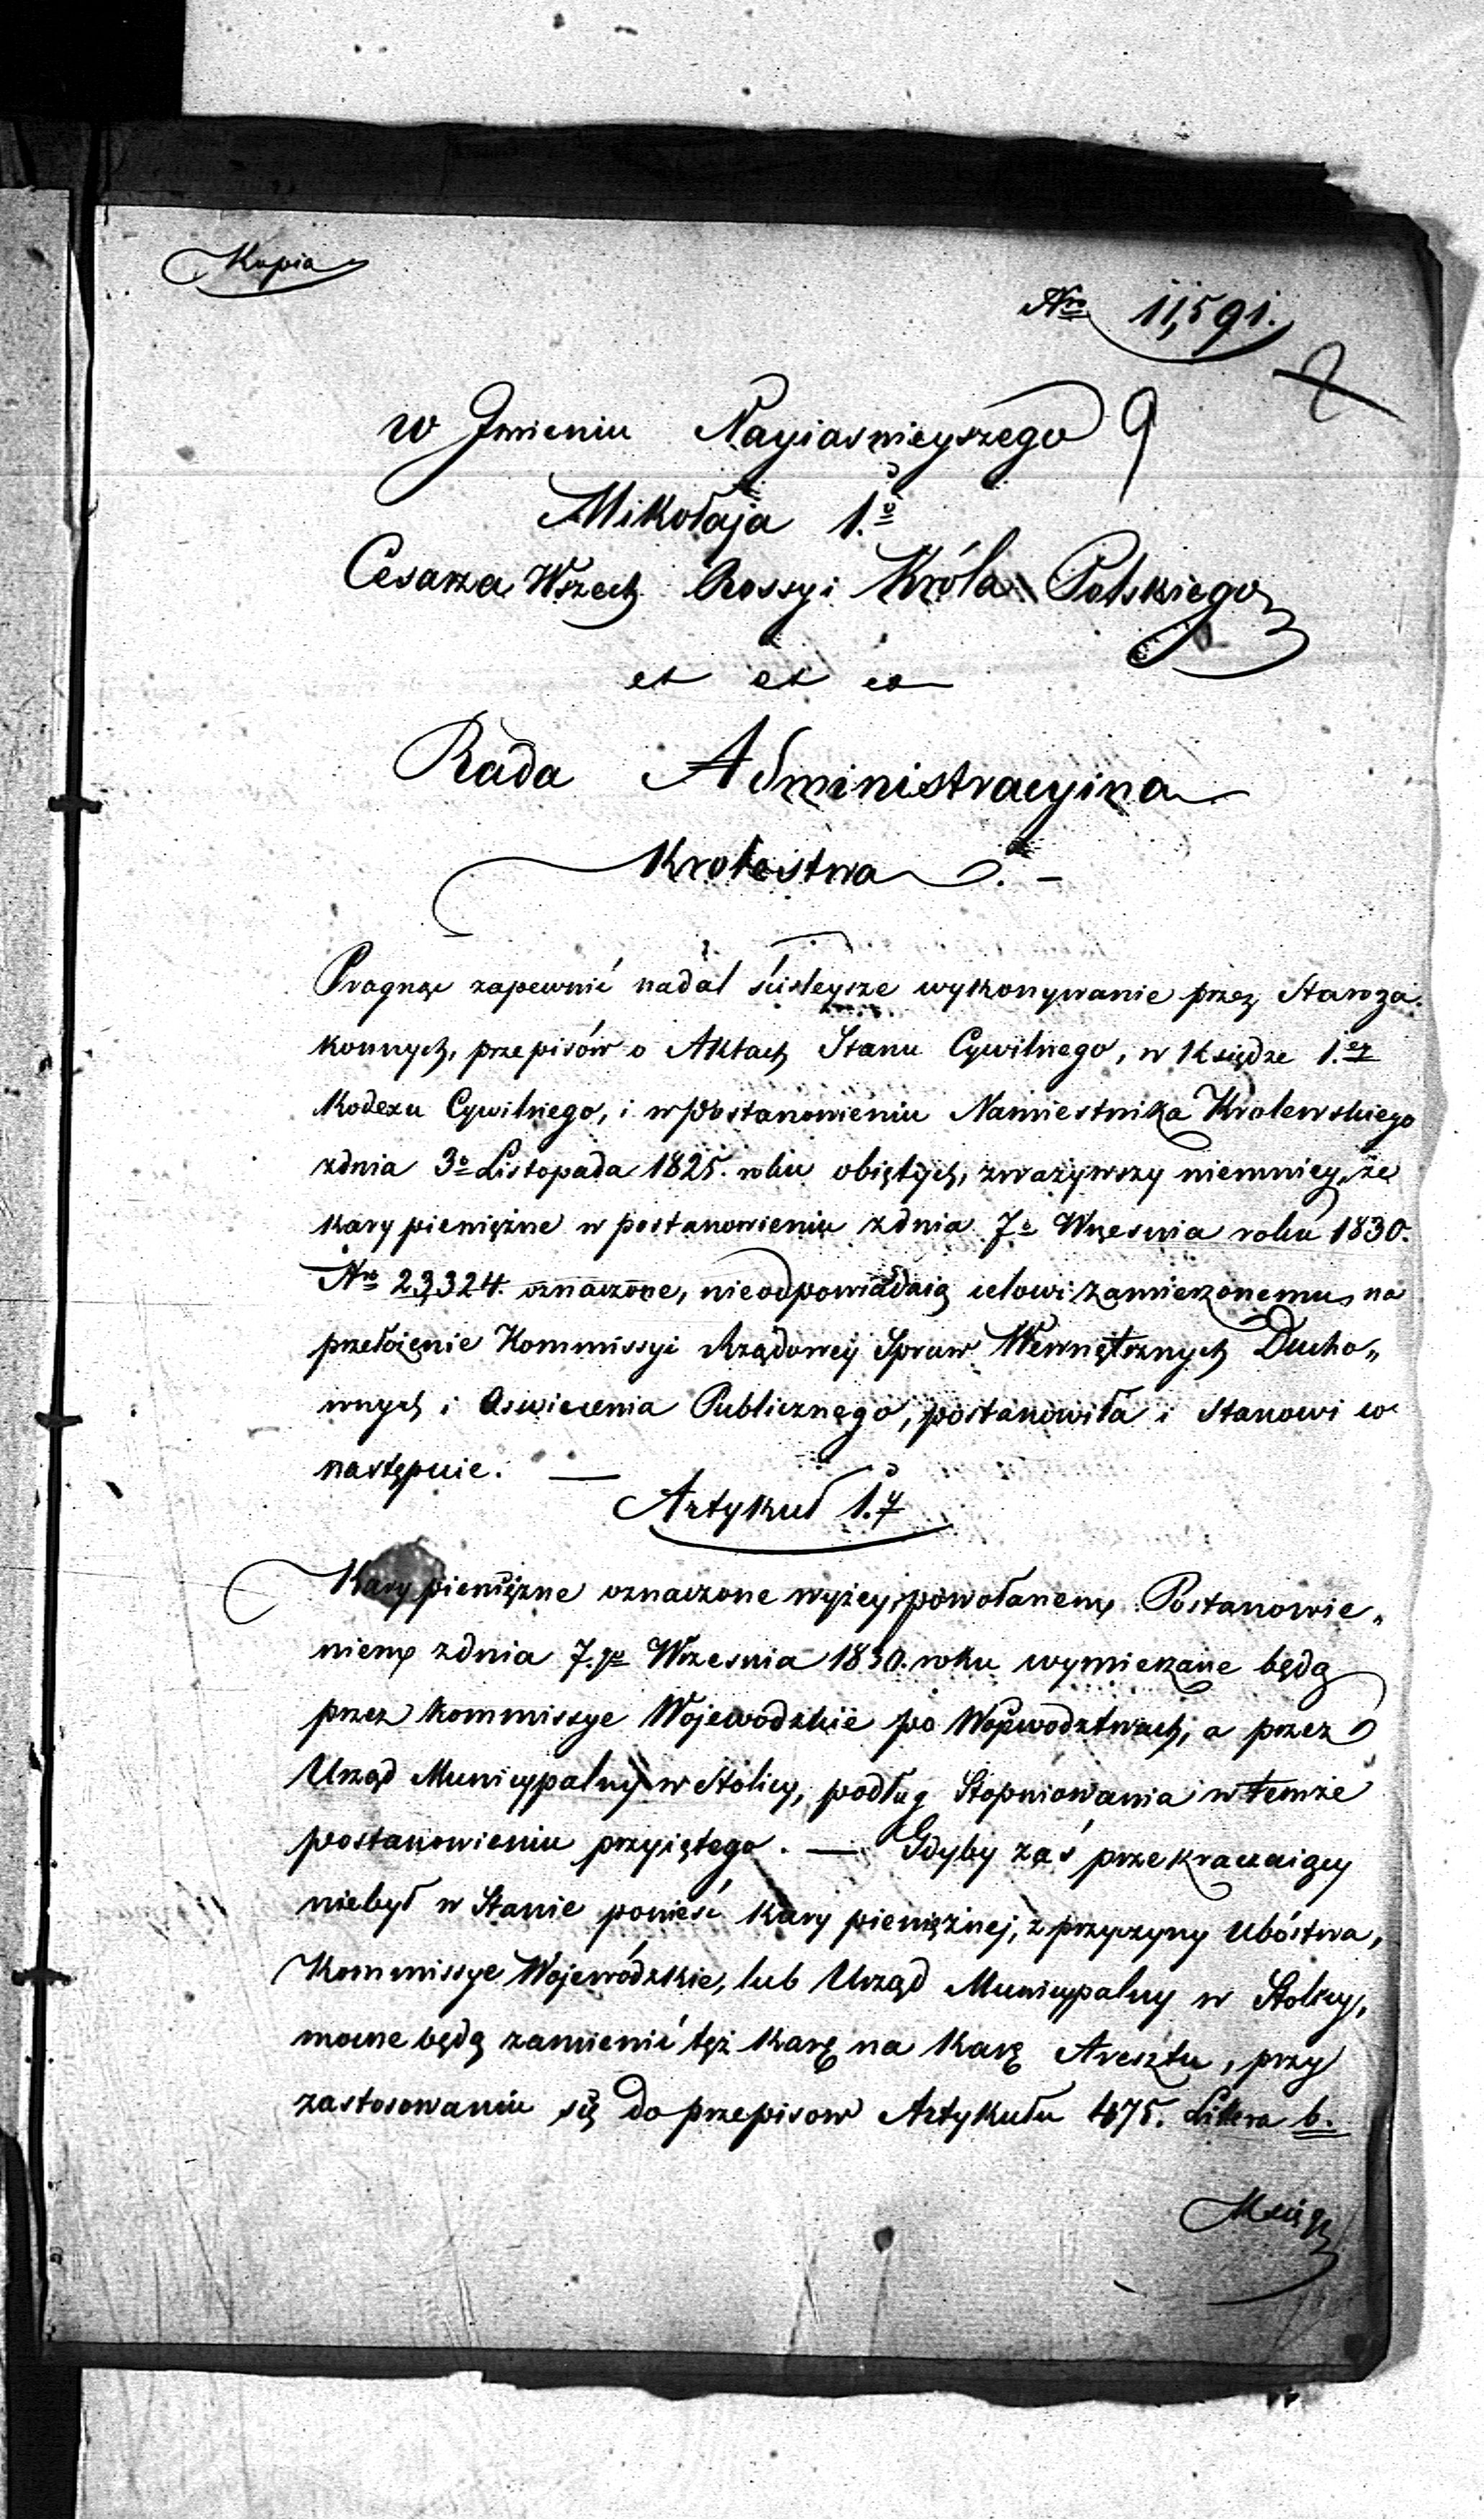 Kopia
Nro 11,591.
2
w Imieniu Nayiasnieyszego 9
Mikołaja 1.o
Cesarza Wszech Rossyi Króla Polskiego
et et et
Rada Administracyina
Krolestwa. —
Pragnąc zapewnić nadal ściśleysze wykonywanie przez Staroza-
konnych, przepisów o Aktach Stanu Cywilnego, w Księdze 1.ey
Kodexu Cywilnego, i w Postanowieniu Namiestnika Krolewskiego
z dnia 3o Listopada 1825. roku obiętych, zważywszy niemniey, że
kary pieniężne w postanowieniu z dnia 7o Września roku 1830.
Nro 23324. oznaczone, nieodpowiadaią celowi zamierzonemu, na
przełożenie Kommissyi Rządowey Spraw Wewnętrznych Ducho„
wnych i Oswiecenia Publicznego, postanowiła i Stanowi co
następuie. —
Artykuł 1.y
Kary pieniężne oznaczone wyżey powołanem Postanowie„
niem z dnia 7.go Wrzesnia 1830. roku wymierzane będą
przez Kommissye Wojewodzkie po Wojewodztwach, a przez
Urząd Municypalny w Stolicy, podług Stopniowania w temże
postanowieniu przyiętego. — Gdyby zaś przekraczaiący
niebył w Stanie ponieść kary pieniężnej, z przyczyny Ubóstwa,
Kommissye Wojewódzkie, lub Urząd Municypalny w Stolicy,
mocne będą zamienić też karę na karę Aresztu, przy
zastosowaniu się do przepisow Artykułu 475. Litera b.
Księgi